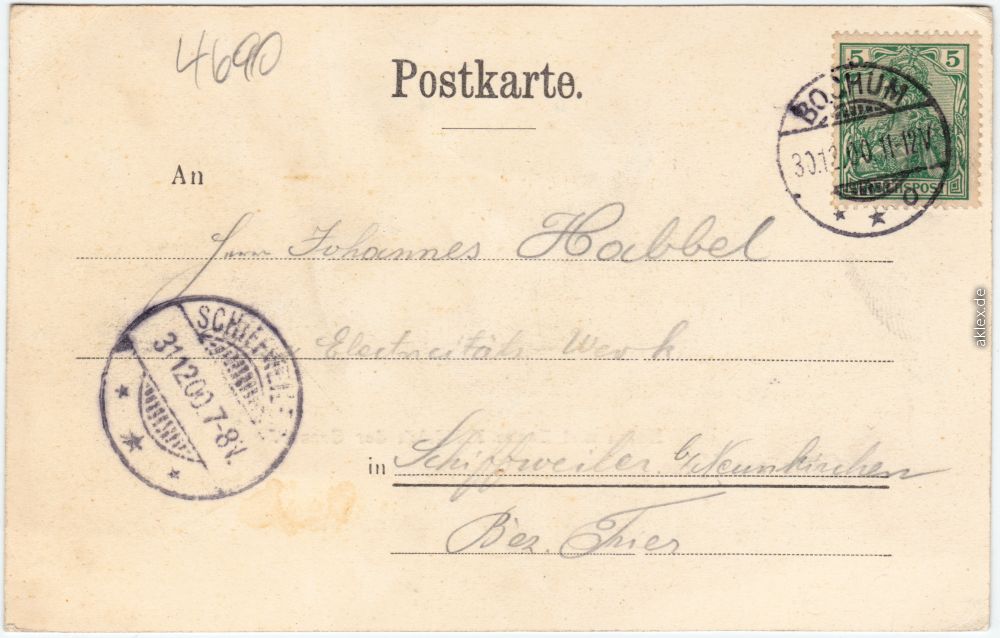 4690
Postkarte.
5 5
REICHSPOST
BOCHUM
30.12.00.11-12V.
* * o
An
Herrn Johannes Habbel
SCHIFFWEILER
31.12.00.7-8V.
Electricitäts Werk
in Schiffweiler b/Neunkirchen
Bez. Trier
aklex.de